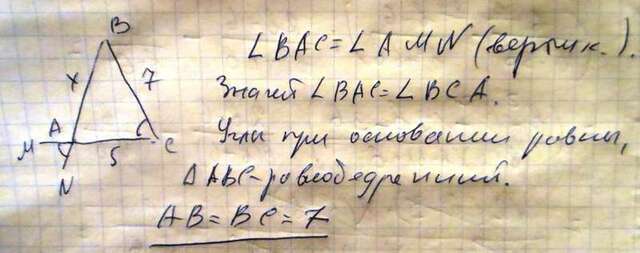 B
x 7
A
M 5 C
N
∠BAC=∠AMN (вертик.).
Значит ∠BAC=∠BCA.
Углы при основании равны,
△ABC-равнобедренный.
AB=BC=7